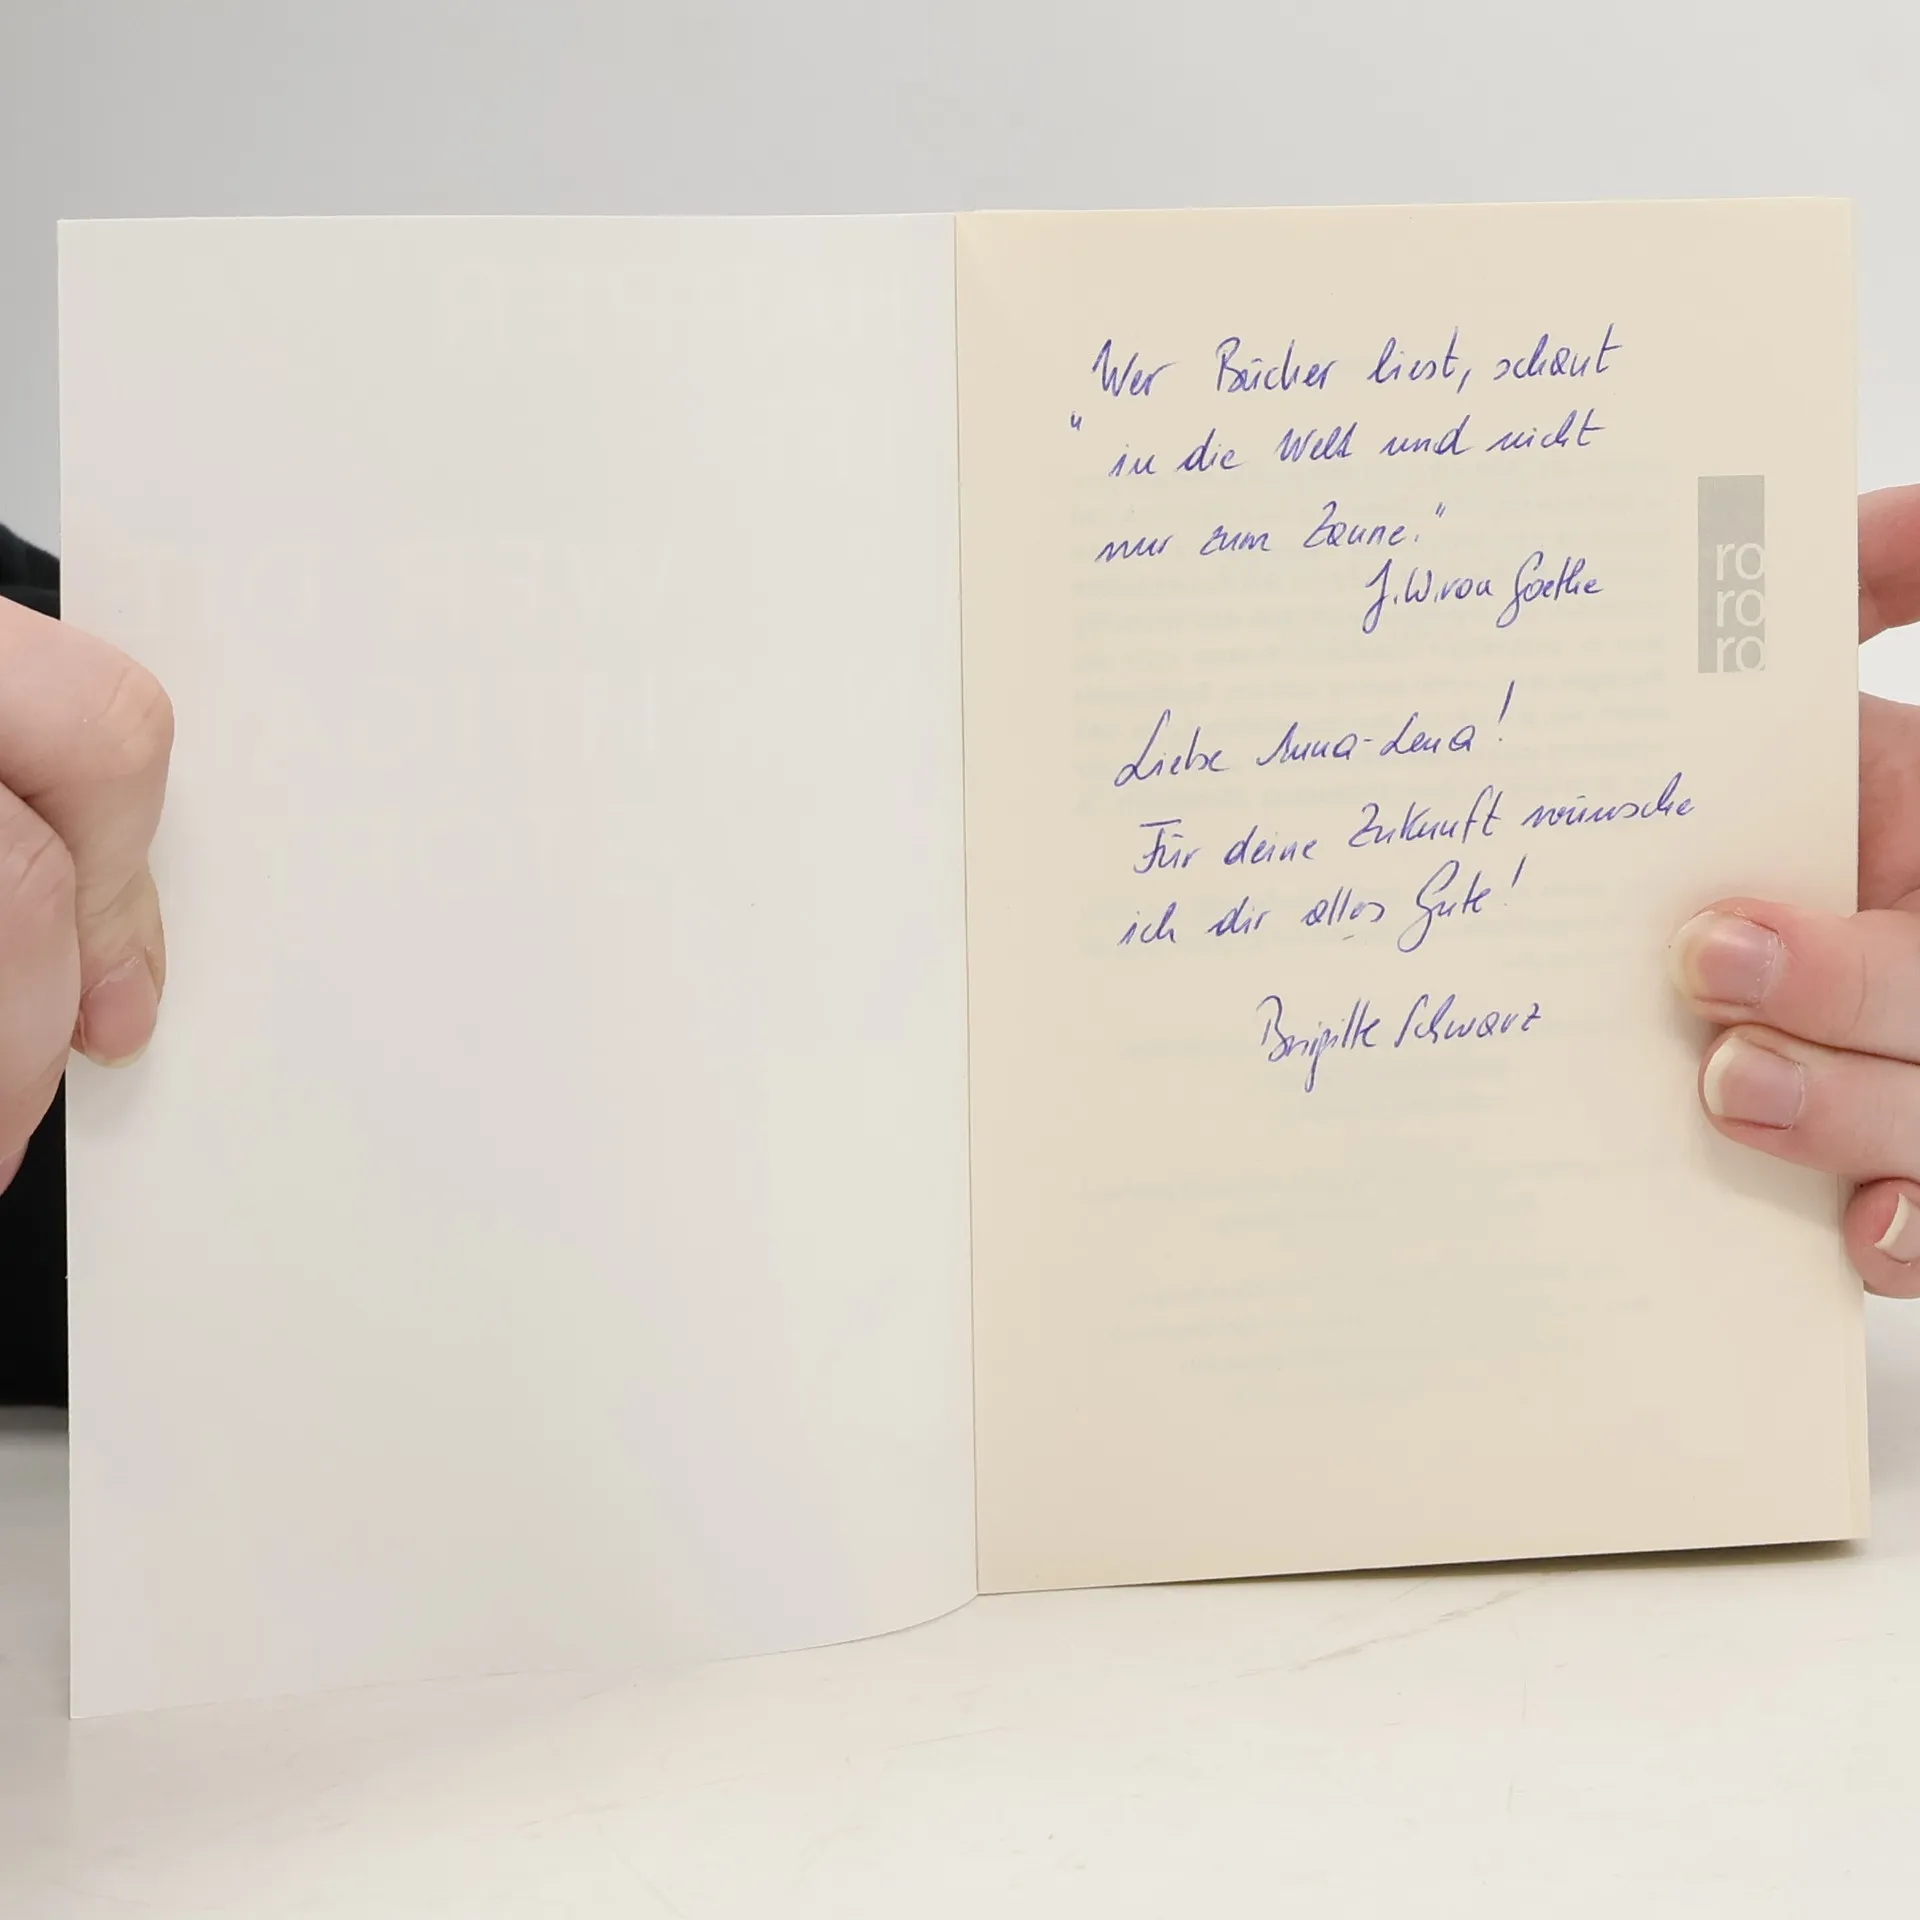 Wer Bücher liest, schaut
" in die Welt und nicht
nur zum Zaune."
J.W.von Goethe
ro
ro
ro
Liebe Anna-Lena!
Für deine Zukunft wünsche
ich dir alles Gute!
Brigitte Schwarz